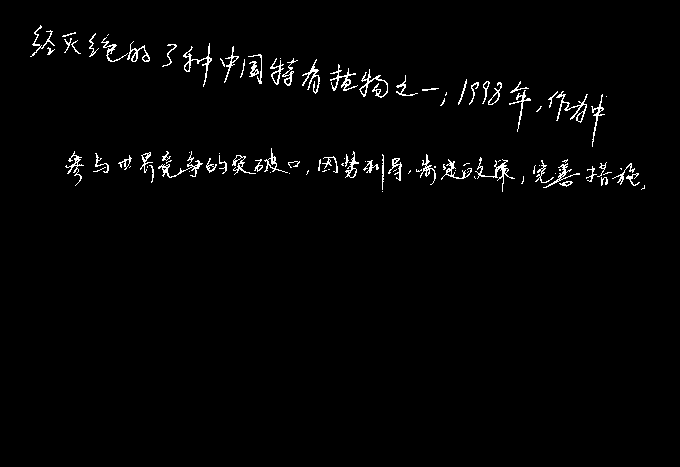 经灭绝的3种中国特有植物之一；1998年，作为中
参与世界竞争的突破口，因势利导，制定政策，完善措施，